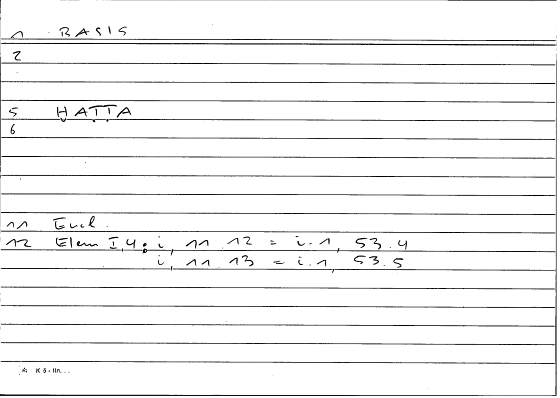 1 BASIS
2
5 ḤAṬṬA
6
11 Eucl.
12 Elem I,4: i, 11 12 = i.1, 53.4
i, 11 13 = i.1, 53.5